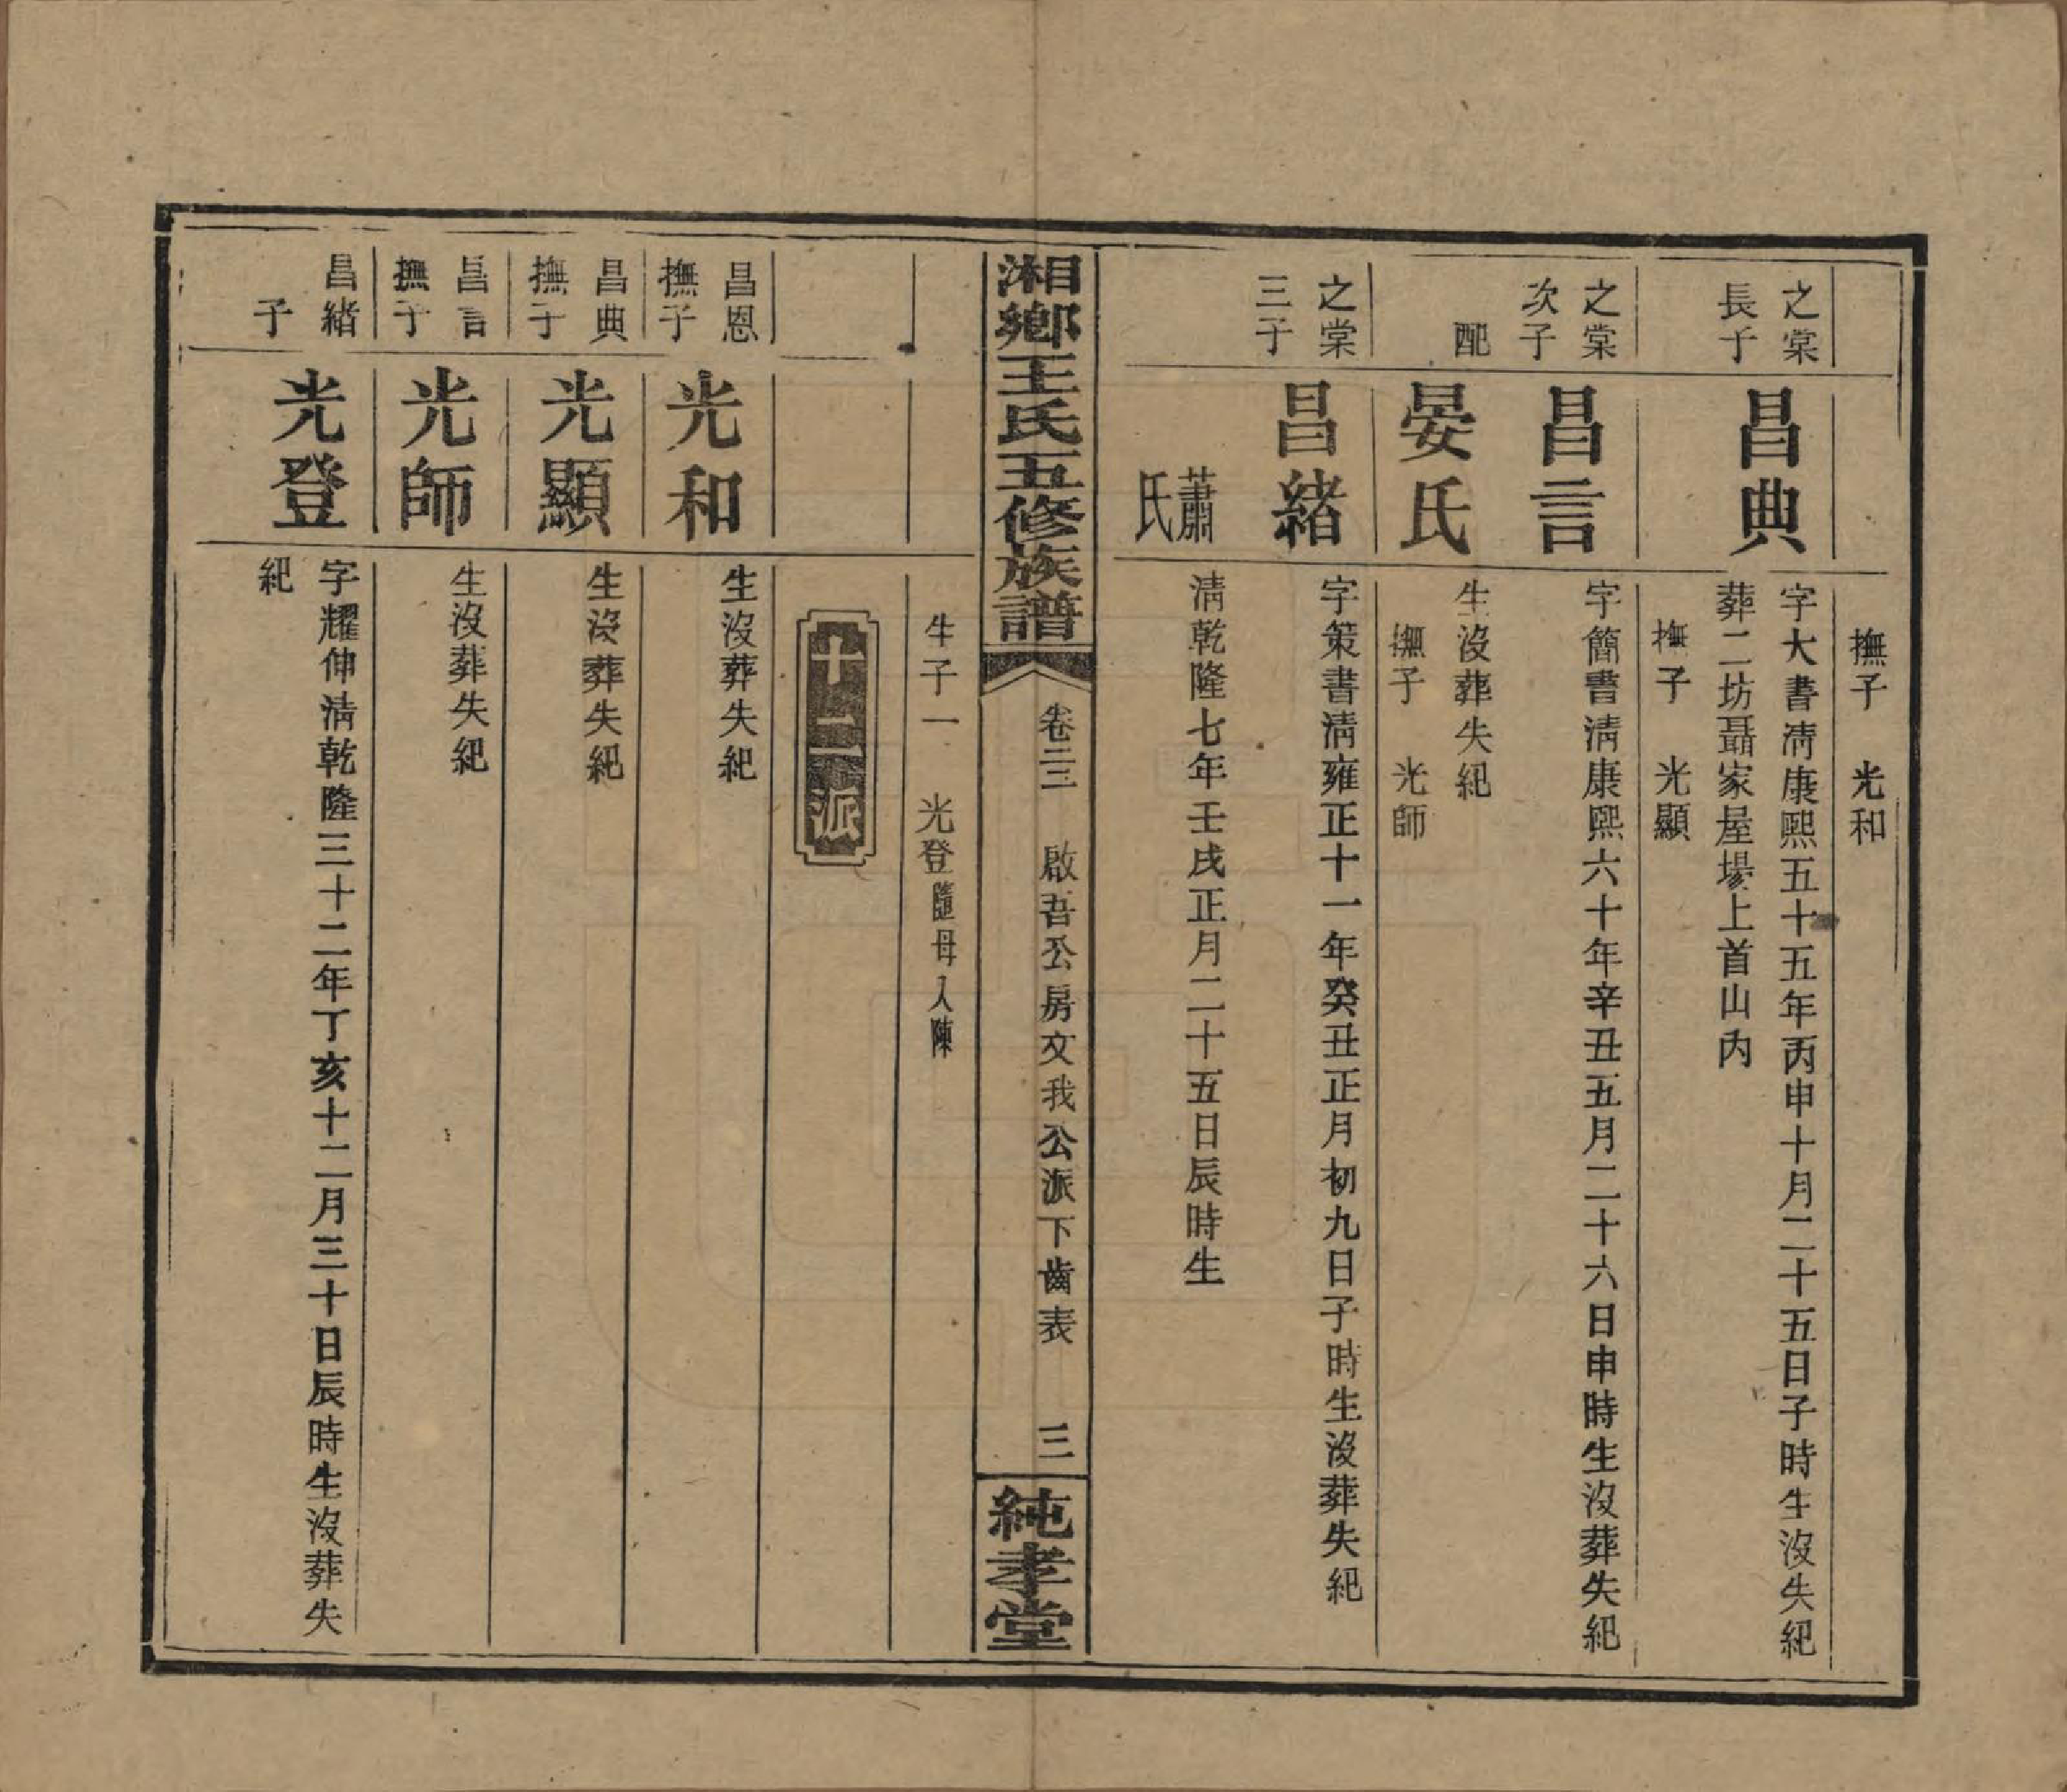 撫子　光和
之棠
長子
昌典
字大書清康熙五十五年丙申十月二十五日子時生沒失紀
葬二坊聶家屋場上首山內
撫子　光顯
之棠
次子
昌言
字簡書清康熙六十年辛丑五月二十六日申時生沒葬失紀
配
晏氏
生沒葬失紀
撫子　光師
之棠
三子
昌緒
字策書清雍正十一年癸丑正月初九日子時生沒葬失紀
蕭氏
清乾隆七年壬戌正月二十五日辰時生
湘鄉王氏五修族譜
卷三三　啟吾公房文我公派下齒表　三
純孝堂
生子一　光登隨母入陳
十二派
昌恩
撫子
光和
生沒葬失紀
昌典
撫子
光顯
生沒葬失紀
昌言
撫子
光師
生沒葬失紀
昌緒
子
光登
字耀伸清乾隆三十二年丁亥十二月三十日辰時生沒葬失
紀